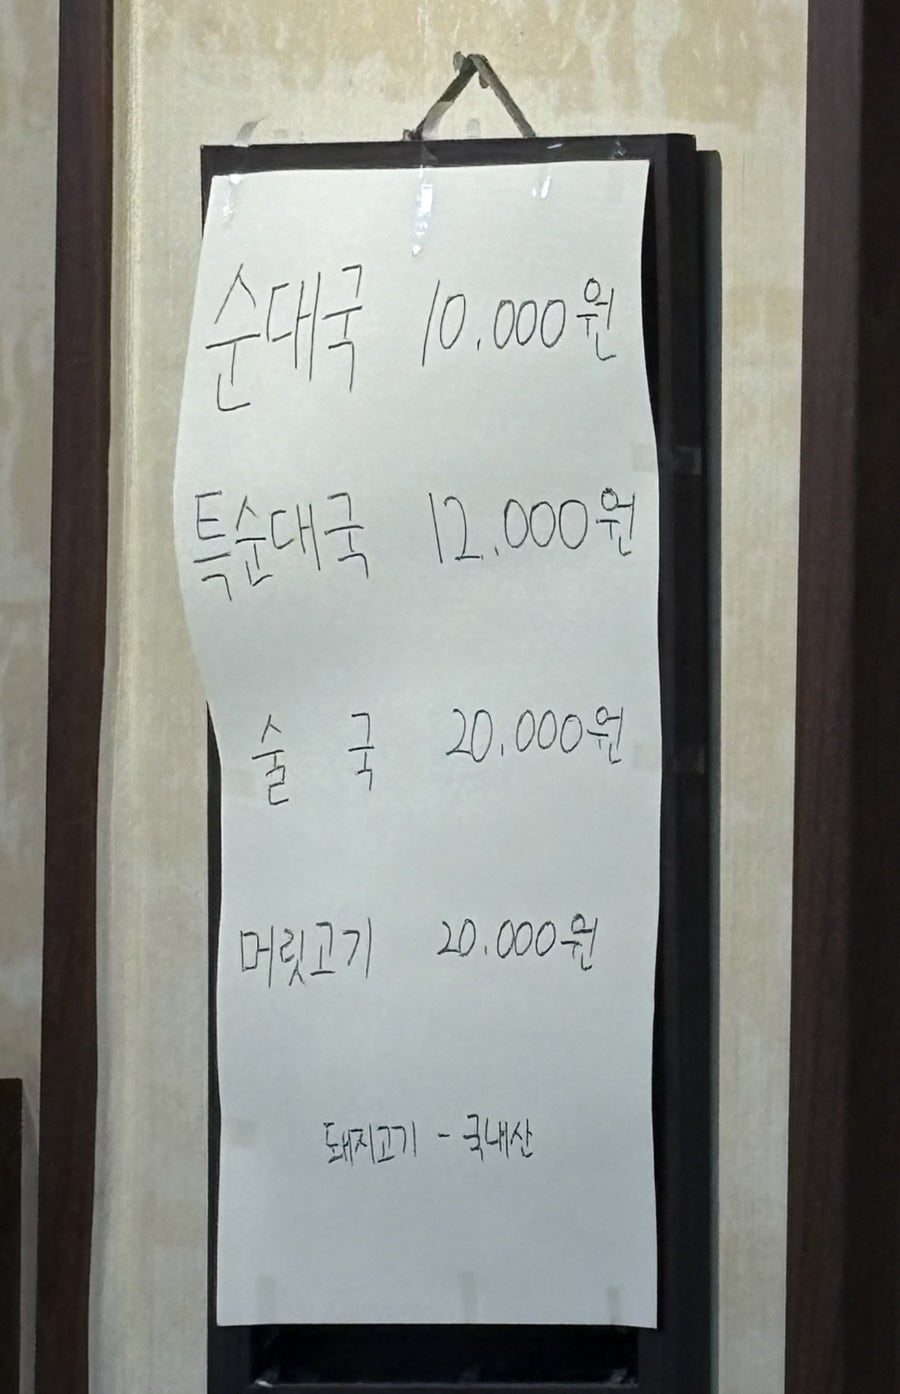 순대국 10.000원
특순대국 12.000원
술 국 20.000원
머릿고기 20.000원
돼지고기 - 국내산